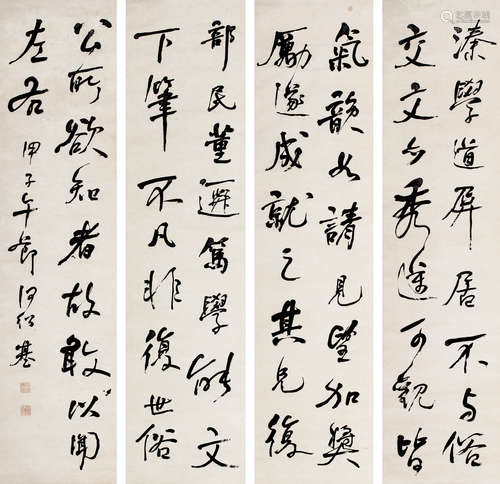 溱學道屏居不与俗
交文亦秀可觀皆
氣韻如請見望加獎
勵遂成就之其兄復
部民董篤學能文
下筆不凡非復世俗
公所欲知者故敢以聞
左右 甲子午節 何紹基